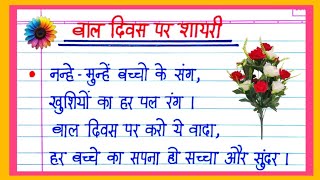 बाल दिवस पर शायरी
• नन्हे-मुन्हें बच्चो के संग,
खुशियों का हर पल रंग।
बाल दिवस पर करो ये वादा,
हर बच्चे का सपना हो सच्चा और सुंदर।